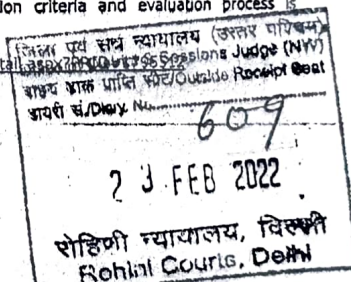 ion criteria and evaluation process is
जिला एवं सत्र न्यायालय (उत्तर पश्चिम)
Sessions Judge (NW)
बाह्य डाक प्राप्ति सीट/Outside Receipt Seat
डायरी सं./Diary No. 609
23 FEB 2022
रोहिणी न्यायालय, दिल्ली
Rohini Courts, Delhi